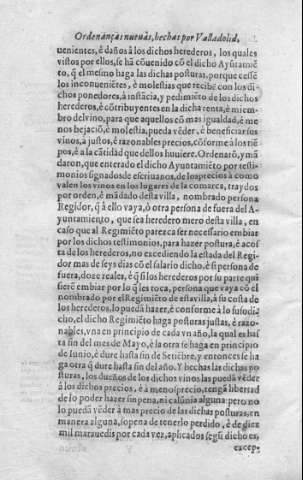 Ordenanças nueuas, hechas por Valladolid,
uenientes, é daños à los dichos herederos, los quales
vistos por ellos, se hà cõuenido cõ el dicho Ayũtamiẽ
to, q̃ el mesmo haga las dichas posturas, porque cessẽ
los inconueniẽtes, é molestias que recibẽ con los di-
chos ponedores, à instãcia, y pedimiẽto de los dichos
herederos, é cõtribuyentes en la dicha renta, é miem-
bro del vino, para que aquellos cõ mas igualdad, é me
nos bejaciõ, é molestia, pueda vẽder, é beneficiar sus
vinos, à justos, é razonables precios, cõforme à los tiẽ
pos, é a la cãtidad que dellos huuiere. Ordenarõ, y mã
daron, que enterado el dicho Ayuntamiẽto por testi-
monios signados de escriuanos, de los precios à como
valen los vinos en los lugares de la comarca, traydos
por orden, é mãdado desta villa, nombrado persona
Regidor, q̃ à ello vaya, ò otra persona de fuera del A-
yuntamiento, que sea heredero mero desta villa, en
caso que al Regimiẽto parezca ser necessario embiar
por los dichos testimonios, para hazer postura, è à cos
ta de los herederos, no excediendo la estada del Regi
dor mas de seys dias cõ el salario dicho, è si persona de
fuera, doze reales, é q̃ si los herederos por su parte qui
sierẽ embiar por lo q̃ les toca, persona que vaya cõ el
nombrado por el Regimiẽto desta villa, à su costa de
los herederos, lo pueda hazer, é conforme à lo susodi-
cho, el dicho Regimiẽto haga posturas justas, é razo-
nables, vna en principio de cada vn año, la qual es has
ta fin del mes de Mayo, é la otra se haga en principio
de Iunio, é dure hasta fin de Setiẽbre, y entonces se ha
ga otra q̃ dure hasta fin del año. Y hechas las dichas po
sturas, los dueños de los dichos vinos, las pueda vẽder
à los dichos precios, é à menos precio, tengã libertad
de lo poder hazer sin pena, ni calũnia alguna: pero no
lo puedã vẽder à mas precio de las dichas posturas, en
manera alguna, so pena de tenerlo perdido, é de diez
mil marauedis por cada vez, aplicados segũ dicho es,
excep-